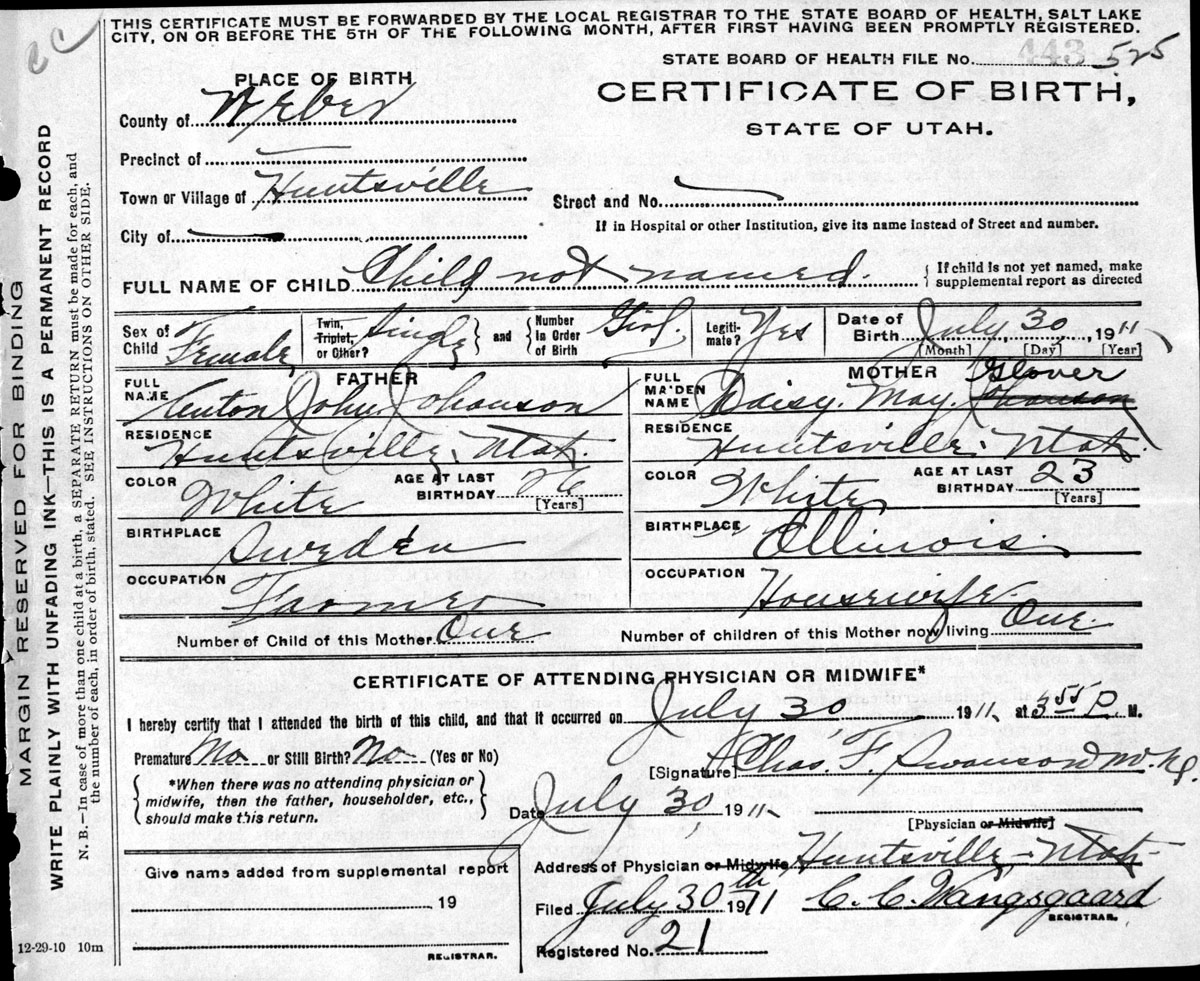 THIS CERTIFICATE MUST BE FORWARDED BY THE LOCAL REGISTRAR TO THE STATE BOARD OF HEALTH, SALT LAKE
CITY, ON OR BEFORE THE 5TH OF THE FOLLOWING MONTH, AFTER FIRST HAVING BEEN PROMPTLY REGISTERED.
STATE BOARD OF HEALTH FILE No. 443 525
PLACE OF BIRTH
CERTIFICATE OF BIRTH,
STATE OF UTAH.
County of Weber
Precinct of
Town or Village of Huntsville
Street and No.
City of
If in Hospital or other Institution, give its name instead of Street and number.
FULL NAME OF CHILD Child not named.
If child is not yet named, make
supplemental report as directed
Sex of
Child Female
Twin,
Triplet,
or Other? Single
and
Number
in Order
of Birth Girl.
Legiti-
mate? Yes
Date of
Birth July 30, 1911
[Month] [Day] [Year]
FATHER
FULL
NAME John Johanson
RESIDENCE
Huntsville, Utah.
COLOR White
AGE AT LAST
BIRTHDAY 26
[Years]
BIRTHPLACE
Sweden
OCCUPATION
Farmer
MOTHER
FULL
MAIDEN
NAME Daisy May Glover Johanson
RESIDENCE
Huntsville, Utah.
COLOR White
AGE AT LAST
BIRTHDAY 23
[Years]
BIRTHPLACE
Illinois.
OCCUPATION
Housewife.
Number of Child of this Mother One
Number of children of this Mother now living One.
CERTIFICATE OF ATTENDING PHYSICIAN OR MIDWIFE*
I hereby certify that I attended the birth of this child, and that it occurred on July 30 1911, at 3 55 P. M.
Premature No or Still Birth? No (Yes or No)
*When there was no attending physician or
midwife, then the father, householder, etc.,
should make this return.
[Signature] Chas. F. Swanson M.D.
Date July 30 1911
[Physician or Midwife]
Address of Physician or Midwife Huntsville Utah.
Filed July 30th 1911 C. C. Wangsgaard
REGISTRAR.
Registered No. 21
Give name added from supplemental report
19
REGISTRAR.
12-29-10 10m
MARGIN RESERVED FOR BINDING
WRITE PLAINLY WITH UNFADING INK—THIS IS A PERMANENT RECORD
N. B.—In case of more than one child at a birth, a SEPARATE RETURN must be made for each, and
the number of each, in order of birth, stated. SEE INSTRUCTIONS ON OTHER SIDE.